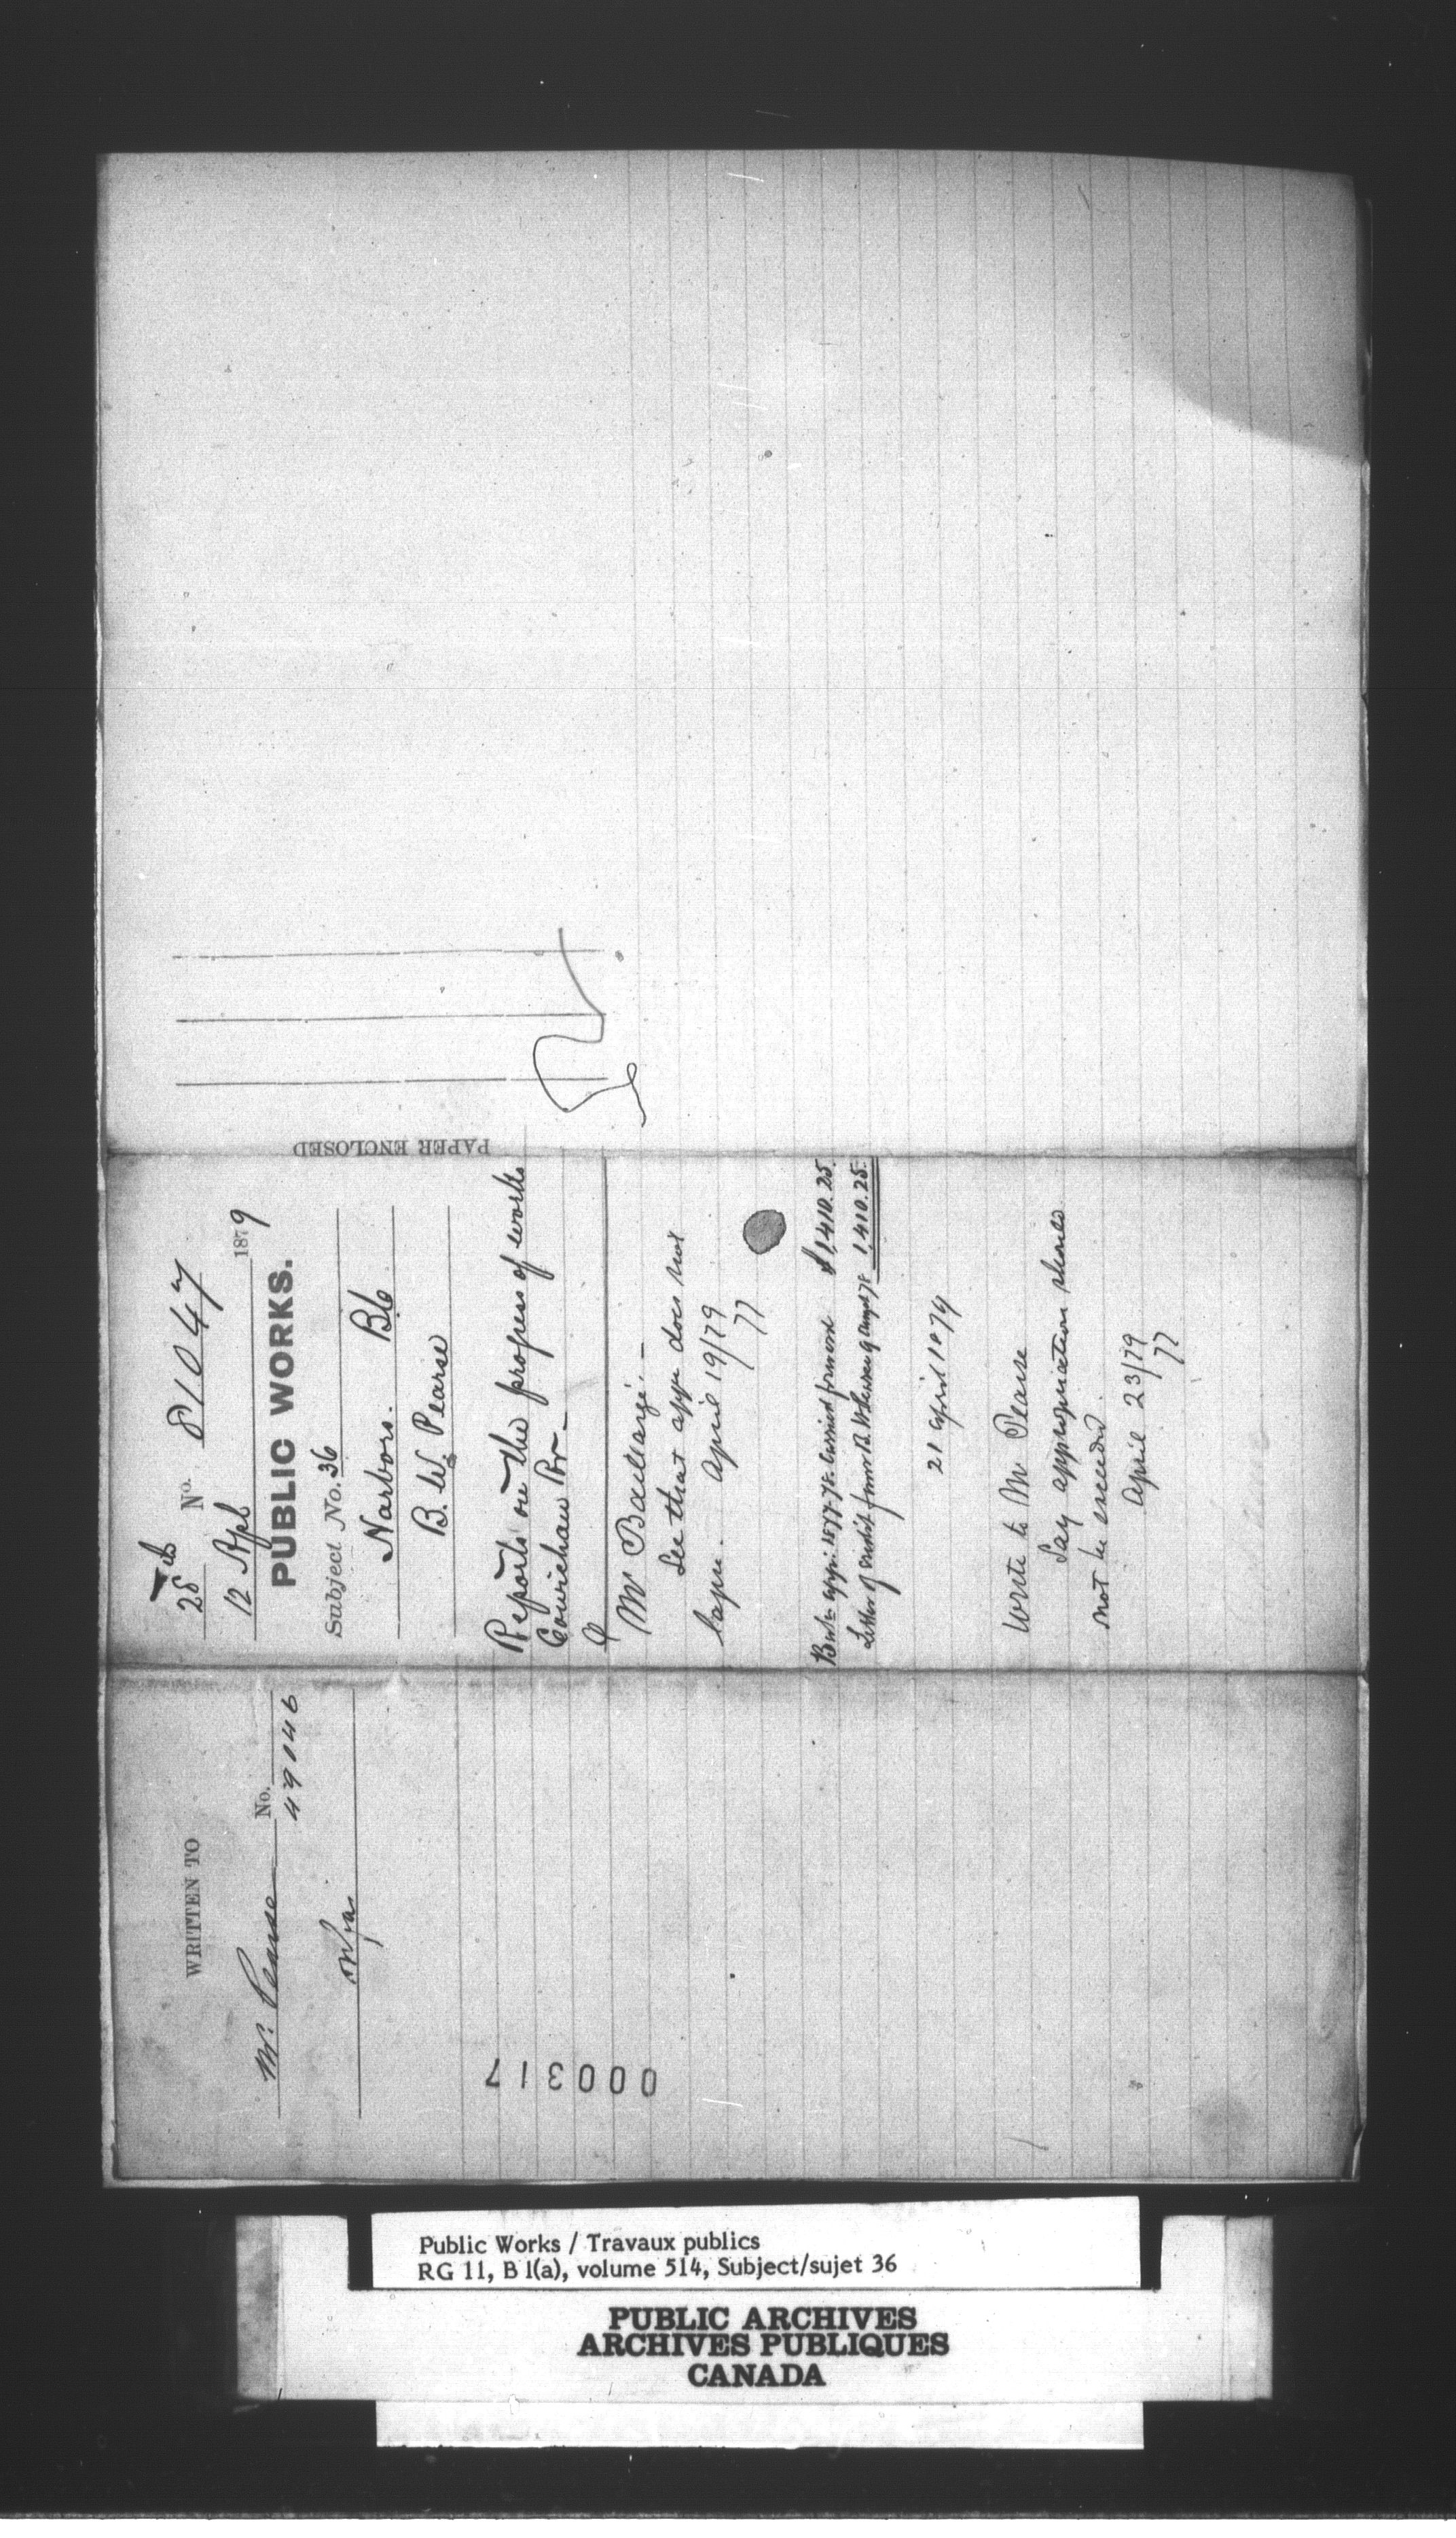 WRITTEN TO
Mr. Pearse No. 49046
000317
Feb
25 No. 81047
12 Apl 1879
PUBLIC WORKS.
Subject No. 36
Harbors. BC
B. W. Pearse
Reports on the progress of works
Cowichan Rr
PAPER ENCLOSED
Mr Baillairgé.
See that appn does not
lapse. April 19/79
Bal. appn. 1877-78. Carried forward $1,410.25.
Letter of Credit favor B. W. Pearse 9 Augt 78 1,410.25.
21 April 1879
Write to Mr Pearse
Say appropriation should
not be exceeded
April 23/79
Public Works / Travaux publics
RG 11, B 1(a), volume 514, Subject/sujet 36
PUBLIC ARCHIVES
ARCHIVES PUBLIQUES
CANADA